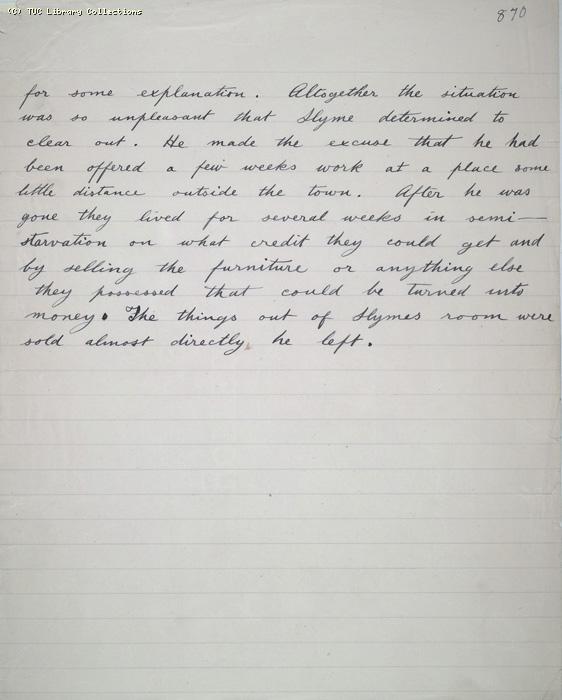 (C) TUC Library Collections
870
for some explanation. Altogether the situation
was so unpleasant that Slyme determined to
clear out. He made the excuse that he had
been offered a few weeks work at a place some
little distance outside the town. After he was
gone they lived for several weeks in semi-
starvation on what credit they could get and
by selling the furniture or anything else
they possessed that could be turned into
money. The things out of Slymes room were
sold almost directly he left.